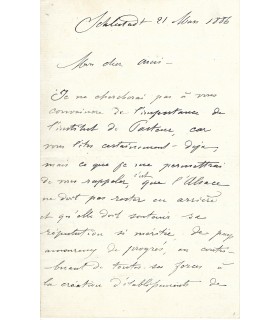 Schlestadt 21 Mars 1886
Mon cher ami -
Je ne chercherai pas à vous
convaincre de l'importance de
l'institut de Pasteur, car
vous l'êtes certainement déja,
mais ce que je me permettrai
de vous rappeler, c'est que l'Alsace
ne doit pas rester en arrière
et qu'elle doit soutenir sa
réputation si méritée de pays
amoureux de progrès, en contri-
buant de toutes ses forces à
la création d'établissements de